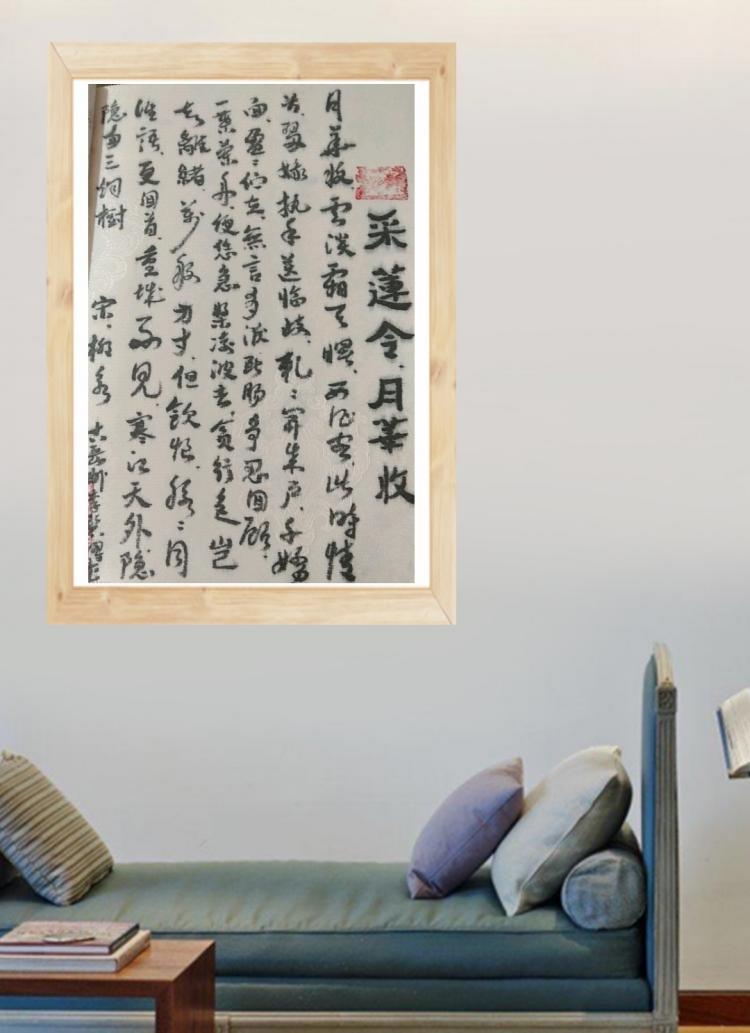 采蓮令.月華收
月華收.雲淡霜天曙.西征客.此時情
苦.翠娥執手送臨歧.軋:開朱户.千嬌
面.盈:伫立.無言有淚.斷腸争忍回顧.
一葉蘭舟.便恁急槳凌波去.貪行色.豈
知離緒.萬般方寸.但飲恨.脉:同
誰語.更回首.重城不見.寒江天外.隱
隱兩三烟樹
宋.柳永